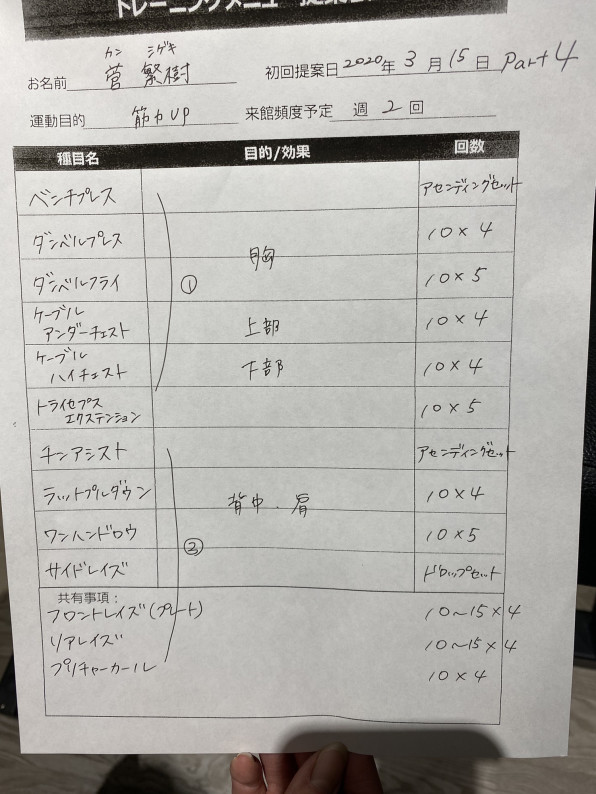 トレーニングメニュー提案
カン シゲキ
お名前 菅 繁樹 初回提案日 2020年 3月 15日 Part 4
運動目的 筋力UP 来館頻度予定 週 2 回
種目名 目的/効果 回数
ベンチプレス アセンディングセット
ダンベルプレス 10×4
胸
ダンベルフライ ① 10×5
ケーブル
アンダーチェスト 上部 10×4
ケーブル
ハイチェスト 下部 10×4
トライセプス
エクステンション 10×5
チンアシスト アセンディングセット
ラットプルダウン 背中・肩 10×4
ワンハンドロウ ② 10×5
サイドレイズ ドロップセット
共有事項:
フロントレイズ(プレート) 10~15×4
リアレイズ 10~15×4
プリチャーカール 10×4